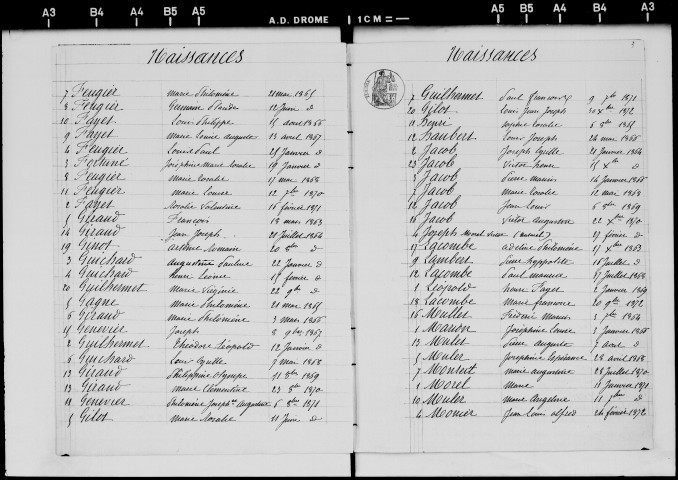 A3 B4 A4 B5 A5 A.D. DROME 1 CM = A5 B5 A4 B4 A3
Naissances
7 Feugier Marie Philomène 21 mai 1865
8 Feugier Germain 12 Juin d
10 Fayet Louis Philippe 15 août 1866
9 Fayet Marie Louise Auguste 23 avril 1867
4 Feugier Louis Paul 25 Janvier d
3 Fortuné Joséphine Marie Rosalie 19 Janvier d
8 Feugier Marie Rosalie 17 mai 1868
11 Feugier Marie Louise 12 7bre 1870
2 Fayet Rosalie Valentine 16 février 1871
5 Giraud François 18 mars 1863
14 Giraud Jean Joseph 21 Juillet 1864
19 Ginot Romain 20 8bre d
3 Guichard Augustine Pauline 22 Janvier d
4 Guichard 15 février d
20 Guilhermet Marie Virginie 22 9bre d
5 Gagne Marie Philomène 21 mai 1865
6 Giraud Marie Philomène 3 mars 1866
15 Genevier Joseph 8 9bre 1867
2 Guilhermet Théodore Léopold 12 Janvier d
6 Guichard Louis Cyrille 7 mai 1868
12 Giraud Philippine Olympe 11 8bre 1869
13 Giraud Marie Clémentine 23 8bre 1870
11 Genevier Philomène Josephne Augustine 6 8bre 1871
5 Gilot Marie Rosalie 11 Juin d
Naissances
7 Guilhermet Paul François 9 7bre 1871
20 Gilot Louis Jean Joseph 30 Xbre 1872
11 Sophie Rosalie 5 8bre 1865
12 Louis Joseph 24 mai 1866
2 Jacob Joseph Cyrille 21 Janvier 1864
23 Jacob Victor Henri 15 Xbre d
Jacob 14 Janvier 1866
Jacob Marie Rosalie 12 mai 1868
12 Jacob Jean Louis 6 8bre 1869
16 Jacob Victor Augustin 22 Xbre 1870
4 Joseph 27 février d
17 Lacombe Adeline Philomène 17 Xbre 1863
9 Lambert Hippolyte 16 Juillet d
12 Lacombe Paul Maurice 17 Juillet 1868
1 Léopold Henri Fayet 2 Janvier 1869
18 Lacombe Marie Françoise 20 9bre 1872
16 Mullet Frédéric Marius 3 7bre 1864
1 Marion Joséphine Louise 3 Janvier 1866
13 Mulet Auguste 3 août d
5 Muler Joséphine 28 avril 1868
7 Monteut Marie Augustine 28 Juillet 1870
1 Morel Marie 11 Janvier 1871
10 Muler Marie Angeline 11 7bre d
4 Monier Jean Louis Alfred 24 février 1872